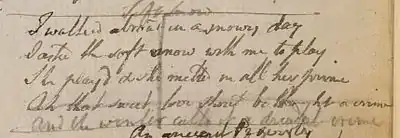 Soft Snow
I walked abroad in a snowy day
I askd the soft snow with me to play
She playd & she melted in all her prime
Ah that sweet love should be thought a crime
And the winter calld it a dreadful crime
An ancient Proverb